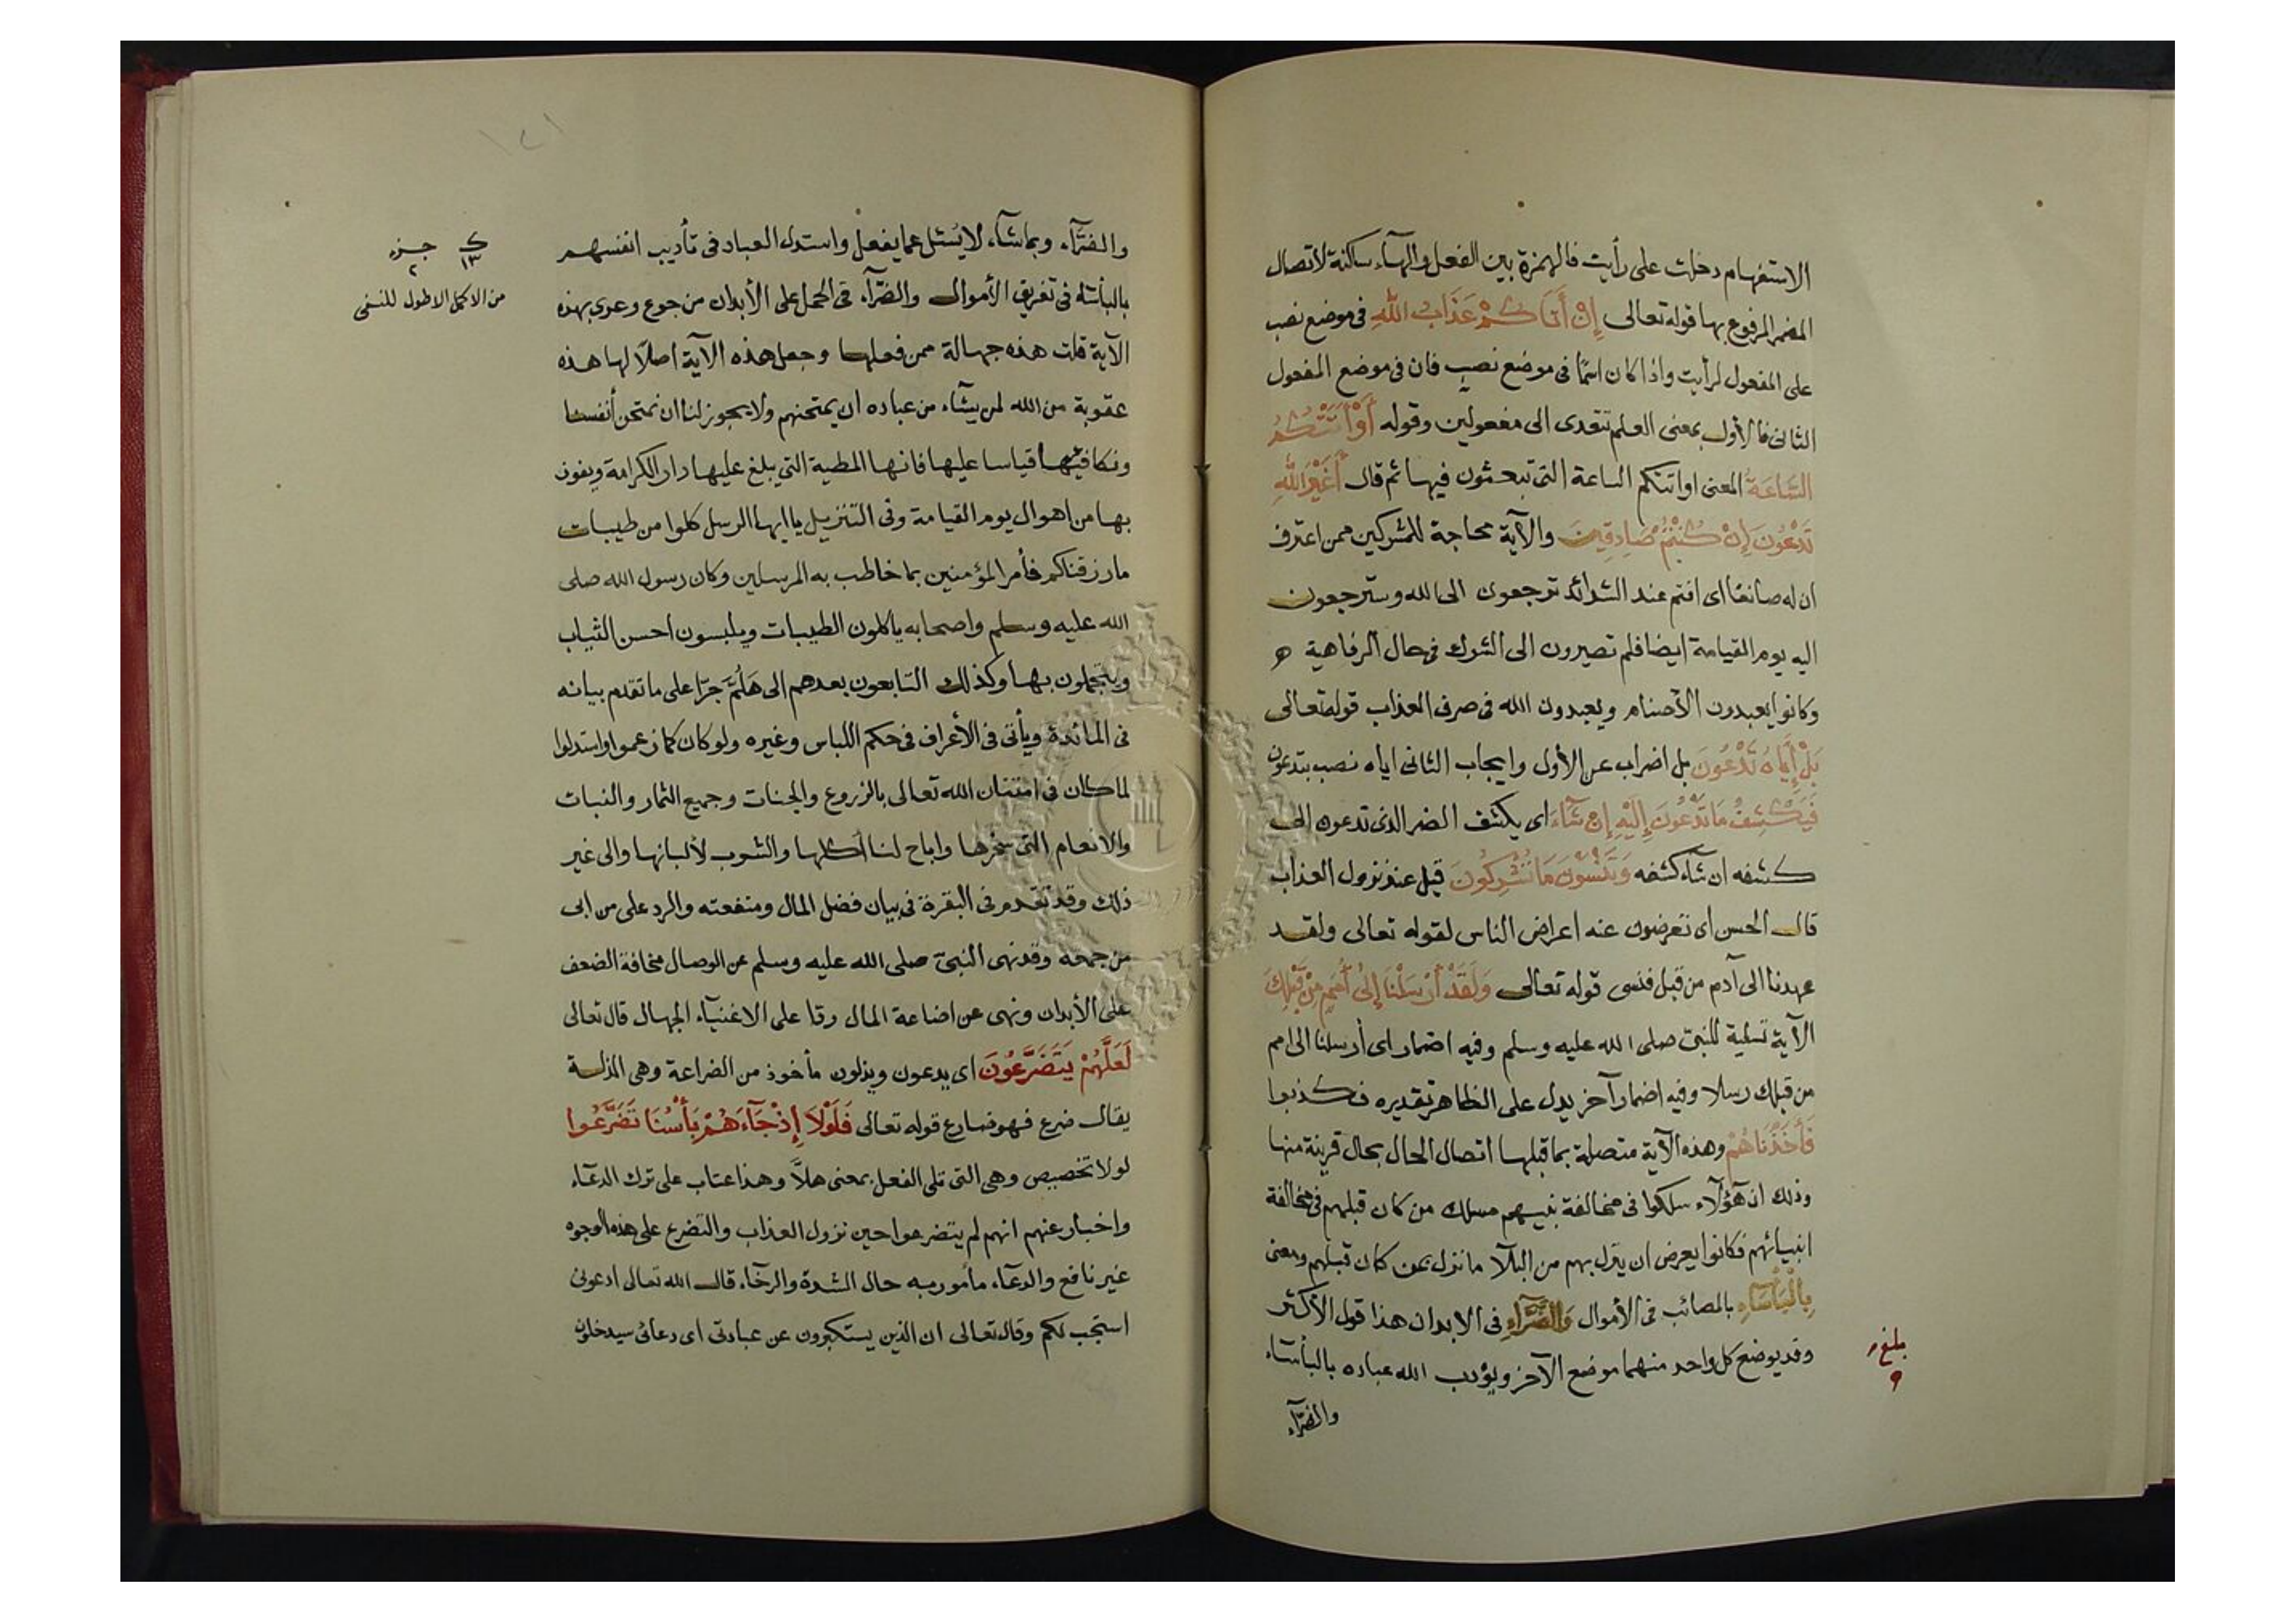 الاستفهام دخلت على رأيت فالهمزة بين الفعل والهاء ساكنة لاتصال
المضمر المرفوع بها قوله تعالى إِنْ أَتَاكُمْ عَذَابُ اللَّهِ فى موضع نصب
على المفعول لرأيت واذا كان اسمًا فى موضع نصب فان فى موضع المفعول
الثانى فالأول بمعنى العلم تتعدى الى مفعولين وقوله أَوْ أَتَتْكُمُ
السَّاعَةُ المعنى او اتتكم الساعة التى تبعثون فيها ثم قال أَغَيْرَ اللَّهِ
تَدْعُونَ إِنْ كُنْتُمْ صَادِقِينَ والآية محاجة للمشركين ممن اعترف
ان له صانعًا اى انتم عند الشدائد ترجعون الى الله وسترجعون
اليه يوم القيامة ايضا فلم تصيرون الى الشرك فى حال الرفاهية
وكانوا يعبدون الأصنام ويعبدون الله فى صرف العذاب قوله تعالى
بَلْ إِيَّاهُ تَدْعُونَ بل اضراب عن الأول وايجاب الثانى اياه نصب بتدعون
فَيَكْشِفُ مَا تَدْعُونَ إِلَيْهِ إِنْ شَاءَ اى يكشف الضر الذى تدعون الى
كشفه ان شاء كشفه وَتَنْسَوْنَ مَا تُشْرِكُونَ قيل عند نزول العذاب
قال الحسن اى تعرضون عنه اعراض الناس لقوله تعالى ولقد
عهدنا الى آدم من قبل فنسى قوله تعالى وَلَقَدْ أَرْسَلْنَا إِلَى أُمَمٍ مِنْ قَبْلِكَ
الآية تسلية للنبى صلى الله عليه وسلم وفيه اضمار اى أرسلنا الى امم
من قبلك رسلا وفيه اضمار آخر يدل على الظاهر تقديره فكذبوا
فَأَخَذْنَاهُمْ وهذه الآية متصلة بما قبلها اتصال الحال بحال قرينة منها
وذلك ان هؤلاء سلكوا فى مخالفة نبيهم مسلك من كان قبلهم فى مخالفة
انبيائهم فكانوا يعرض ان ينزل بهم من البلآ ما نزل بمن كان قبلهم ومعنى
بِالْبَأْسَاءِ بالمصائب فى الأموال وَالضَّرَّاءِ فى الابدان هذا قول الأكثر
وقد يوضع كل واحد منهما موضع الآخر ويؤدب الله عباده بالبأساء
والضرّآء
والضرّآء وبما شآء لا يُسئل عما يفعل واستدل العباد فى تأديب انفسهم
بالبأساء فى تفريق الأموال والضرّآء فى الحمل على الأبدان من جوع وعرى بهذه
الآية قلت هذه جهالة ممن فعلها وجعل هذه الآية اصلا لها هذه
عقوبة من الله لمن يشآء من عباده ان يمتحنهم ولا يجوز لنا ان نمتحن أنفسنا
ونكافيها قياسا عليها فانها المطية التى يبلغ عليها دار الكرامة ويفوز
بها من اهوال يوم القيامة وفى التنزيل يا ايها الرسل كلوا من طيبات
ما رزقناكم فأمر المؤمنين بما خاطب به المرسلين وكان رسول الله صلى
الله عليه وسلم واصحابه يأكلون الطيبات ويلبسون احسن الثياب
ويتجملون بها وكذلك التابعون بعدهم الى هَلُمَّ جرّا على ما تقدم بيانه
فى المائدة ويأتى فى الأعراف فى حكم اللباس وغيره ولو كان كما زعموا واستدلوا
لما كان فى امتنان الله تعالى بالزروع والجنات وجميع الثمار والنبات
والانعام التى سخرها واباح لنا أكلها والشوب لألبانها والى غير
ذلك وقد تقدم فى البقرة فى بيان فضل المال ومنفعته والرد على من ابى
من جمعه وقد نهى النبىّ صلى الله عليه وسلم عن الوصال مخافة الضعف
على الأبدان ونهى عن اضاعة المال ردا على الاغنيآء الجهال قال تعالى
لَعَلَّهُمْ يَتَضَرَّعُونَ اى يدعون ويذلون مأخوذ من الضراعة وهى المذلة
يقال ضرع فهو ضارع قوله تعالى فَلَوْلَا إِذْ جَآءَهُمْ بَأْسُنَا تَضَرَّعُوا
لولا تخصيص وهى التى تلى الفعل بمعنى هلاَّ وهذا عتاب على ترك الدعآء
واخبار عنهم انهم لم يتضرعوا حين نزول العذاب والتضرع على هذه الوجوه
غير نافع والدعآء مأمور به حال الشدة والرخآء قال الله تعالى ادعونى
استجب لكم وقال تعالى ان الذين يستكبرون عن عبادتى اى دعائى سيدخلون
ك جزء
١٣ ٢
من الاكمل الاطول للنسفى